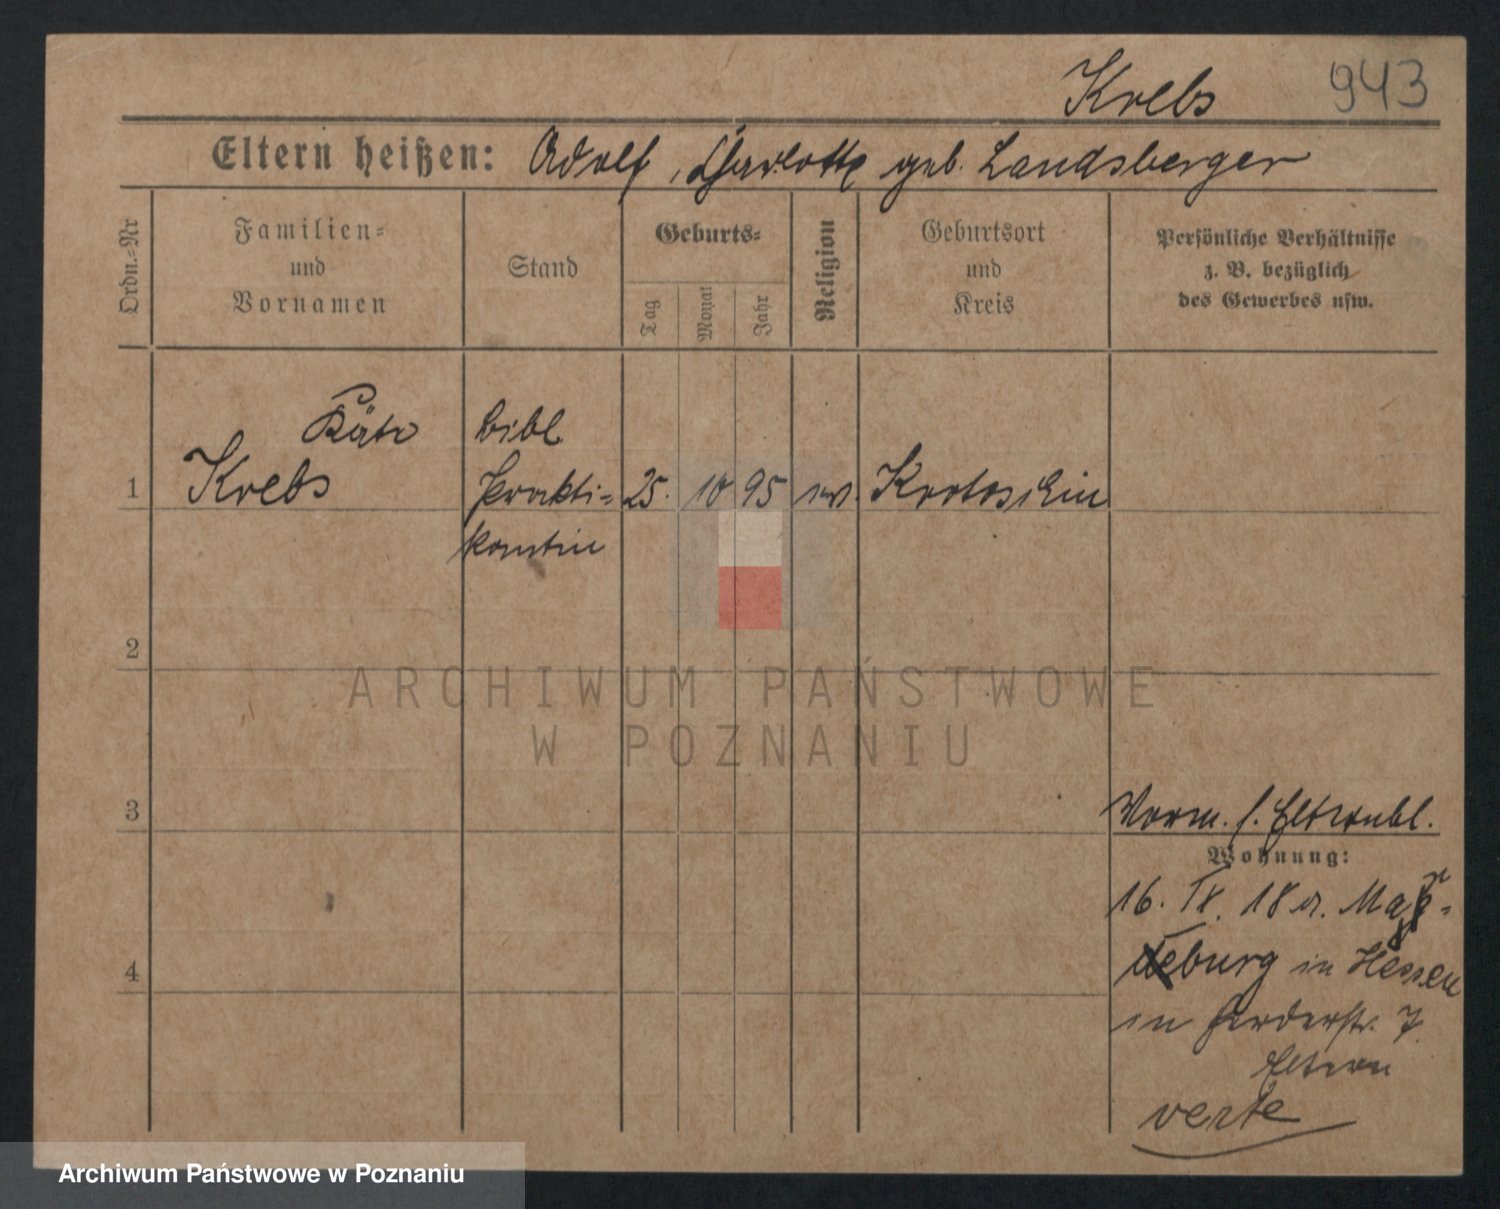 Krebs 943
Eltern heißen: Adolf, Charlotte geb. Landsberger
Ordn.-Nr
Familien-
und
Vornamen
Stand
Geburts-
Tag Monat Jahr
Religion
Geburtsort
und
Kreis
Persönliche Verhältnisse
z. B. bezüglich
des Gewerbes usw.
Käte bibl.
1 Krebs Prakti- 25. 10 95 Krotoschin
kantin
2
3
Vorm. s. Elternbl.
Wohnung:
16. IX. 18 a.
4
burg in Hessen
in Herderstr. 7
Eltern
verte
ARCHIWUM PAŃSTWOWE
W POZNANIU
Archiwum Państwowe w Poznaniu